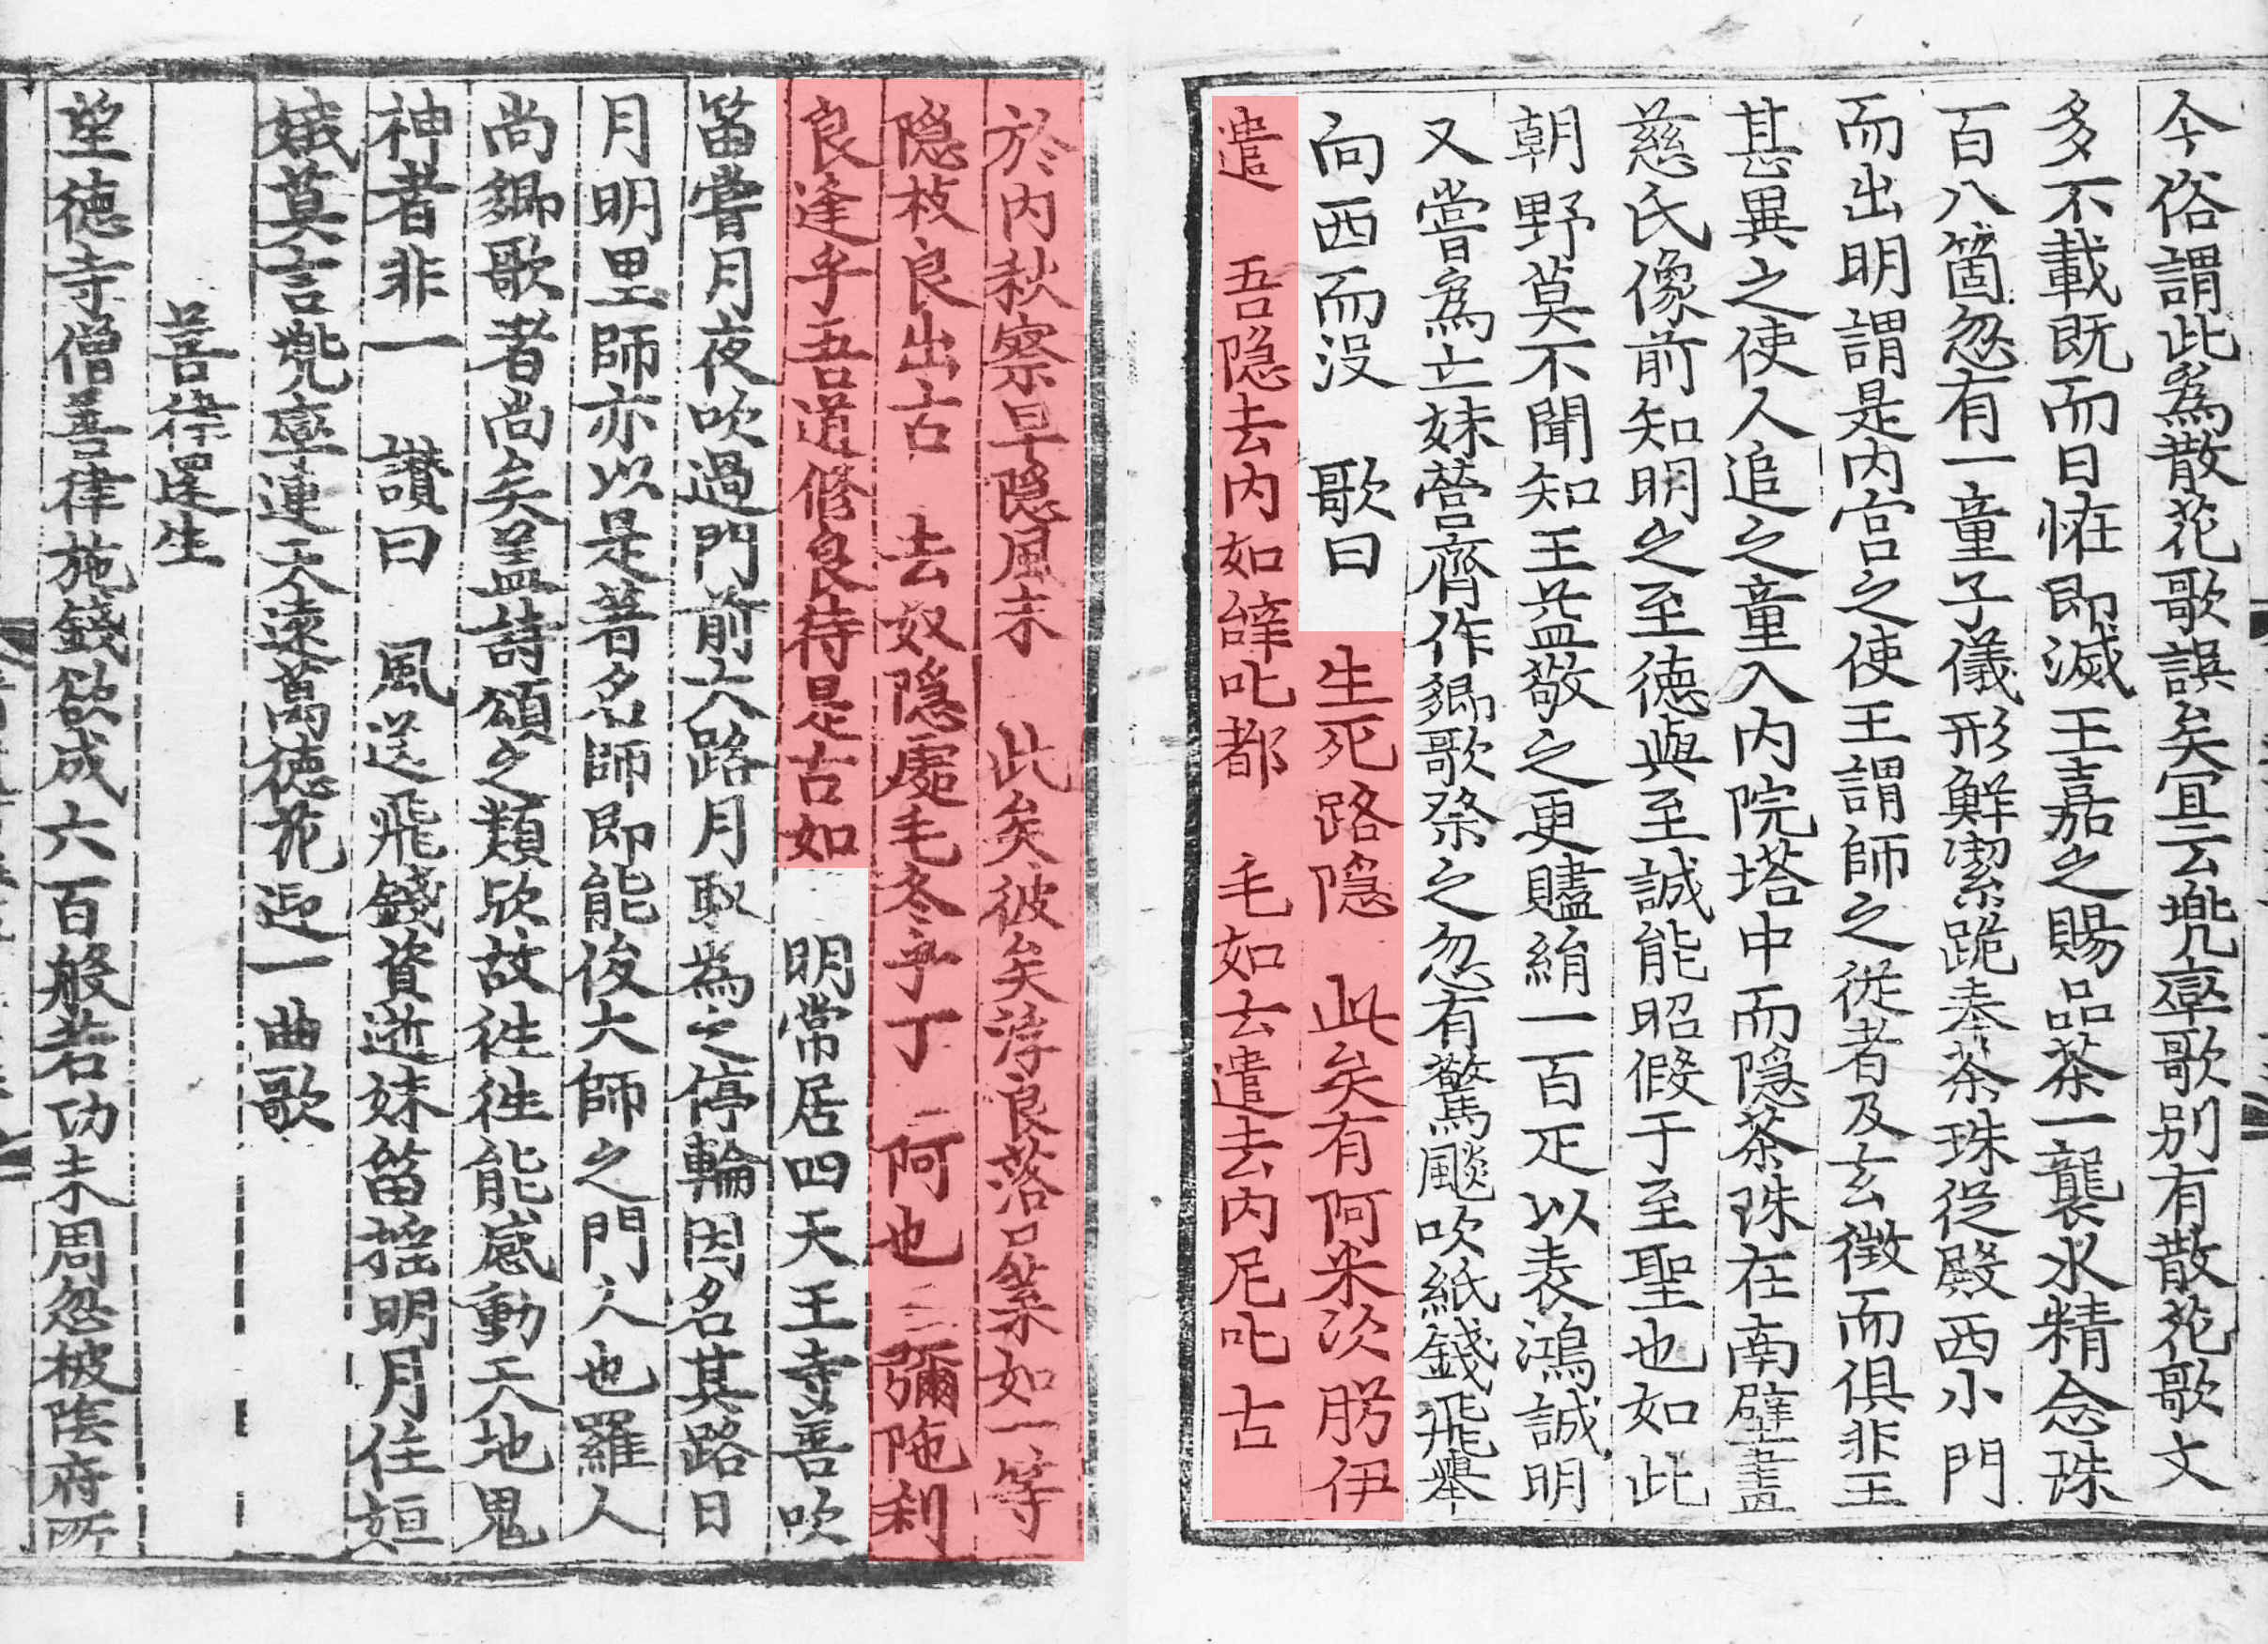 今俗謂此為散花歌誤矣宜云兜率歌別有散花歌文
多不載既而日恠即滅王嘉之賜品茶一襲水精念珠
百八箇忽有一童子儀形鮮潔跪奉茶珠從殿西小門
而出明謂是内宮之使王謂師之從者及玄徵而俱非王
甚異之使人追之童入内院塔中而隐茶珠在南壁畫
慈氏像前知明之至徳與至誠能昭假于至聖也如此
朝野莫不聞知王益敬之更贐絹一百疋以表鴻誠明
又嘗為亡妹營齋作郷歌祭之忽有驚颷吹紙錢飛舉
向西而没 歌曰 生死路隐 此矣有阿米次肹伊
遣 吾隐去内如辝叱都 毛如云遣去内尼叱古
於内秋察早隐風未 此矣彼矣浮良落尸葉如一等
隐枝良出古 去奴隐處毛冬乎丁 阿也 彌陁刹
良逢乎吾道修良待是古如 明常居四天王寺善吹
笛嘗月夜吹過門前大路月馭為之停輪因名其路曰
月明里師亦以是著名師即能俊大師之門人也羅人
尚郷歌者尚矣盖詩頌之類歟故徃徃能感動天地鬼
神者非一 讃曰 風送飛錢資逝妹笛揺明月住姮
娥莫言兜率連天遠萬徳花迎一曲歌
善律還生
望徳寺僧善律施錢欲成六百般若功未周忽被陰府所